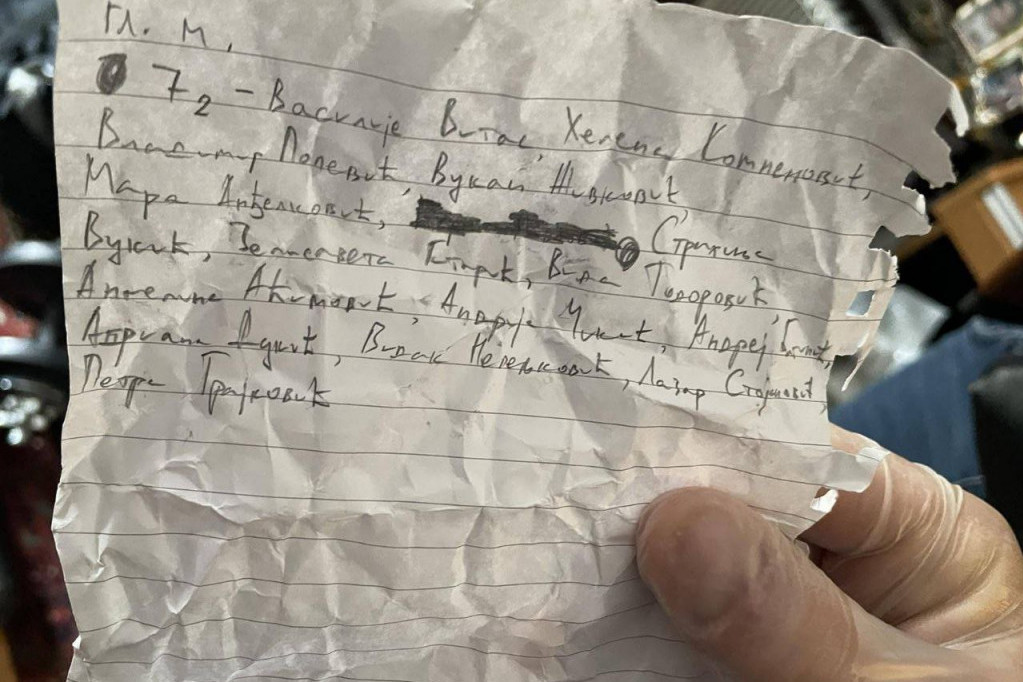 Гл. М.
7₂ - Василије Витас, Хелена Комненовић,
Владимир Попевић, Вукан Живковић,
Мара Анђелковић, Страхиња
Вукић, Јелисавета Вида Тодоровић,
Ангелина Акимовић, Андрија Чикић, Андреј
Адриана Дукић, Видак Недељковић, Лазар Стојановић,
Петра Трајковић